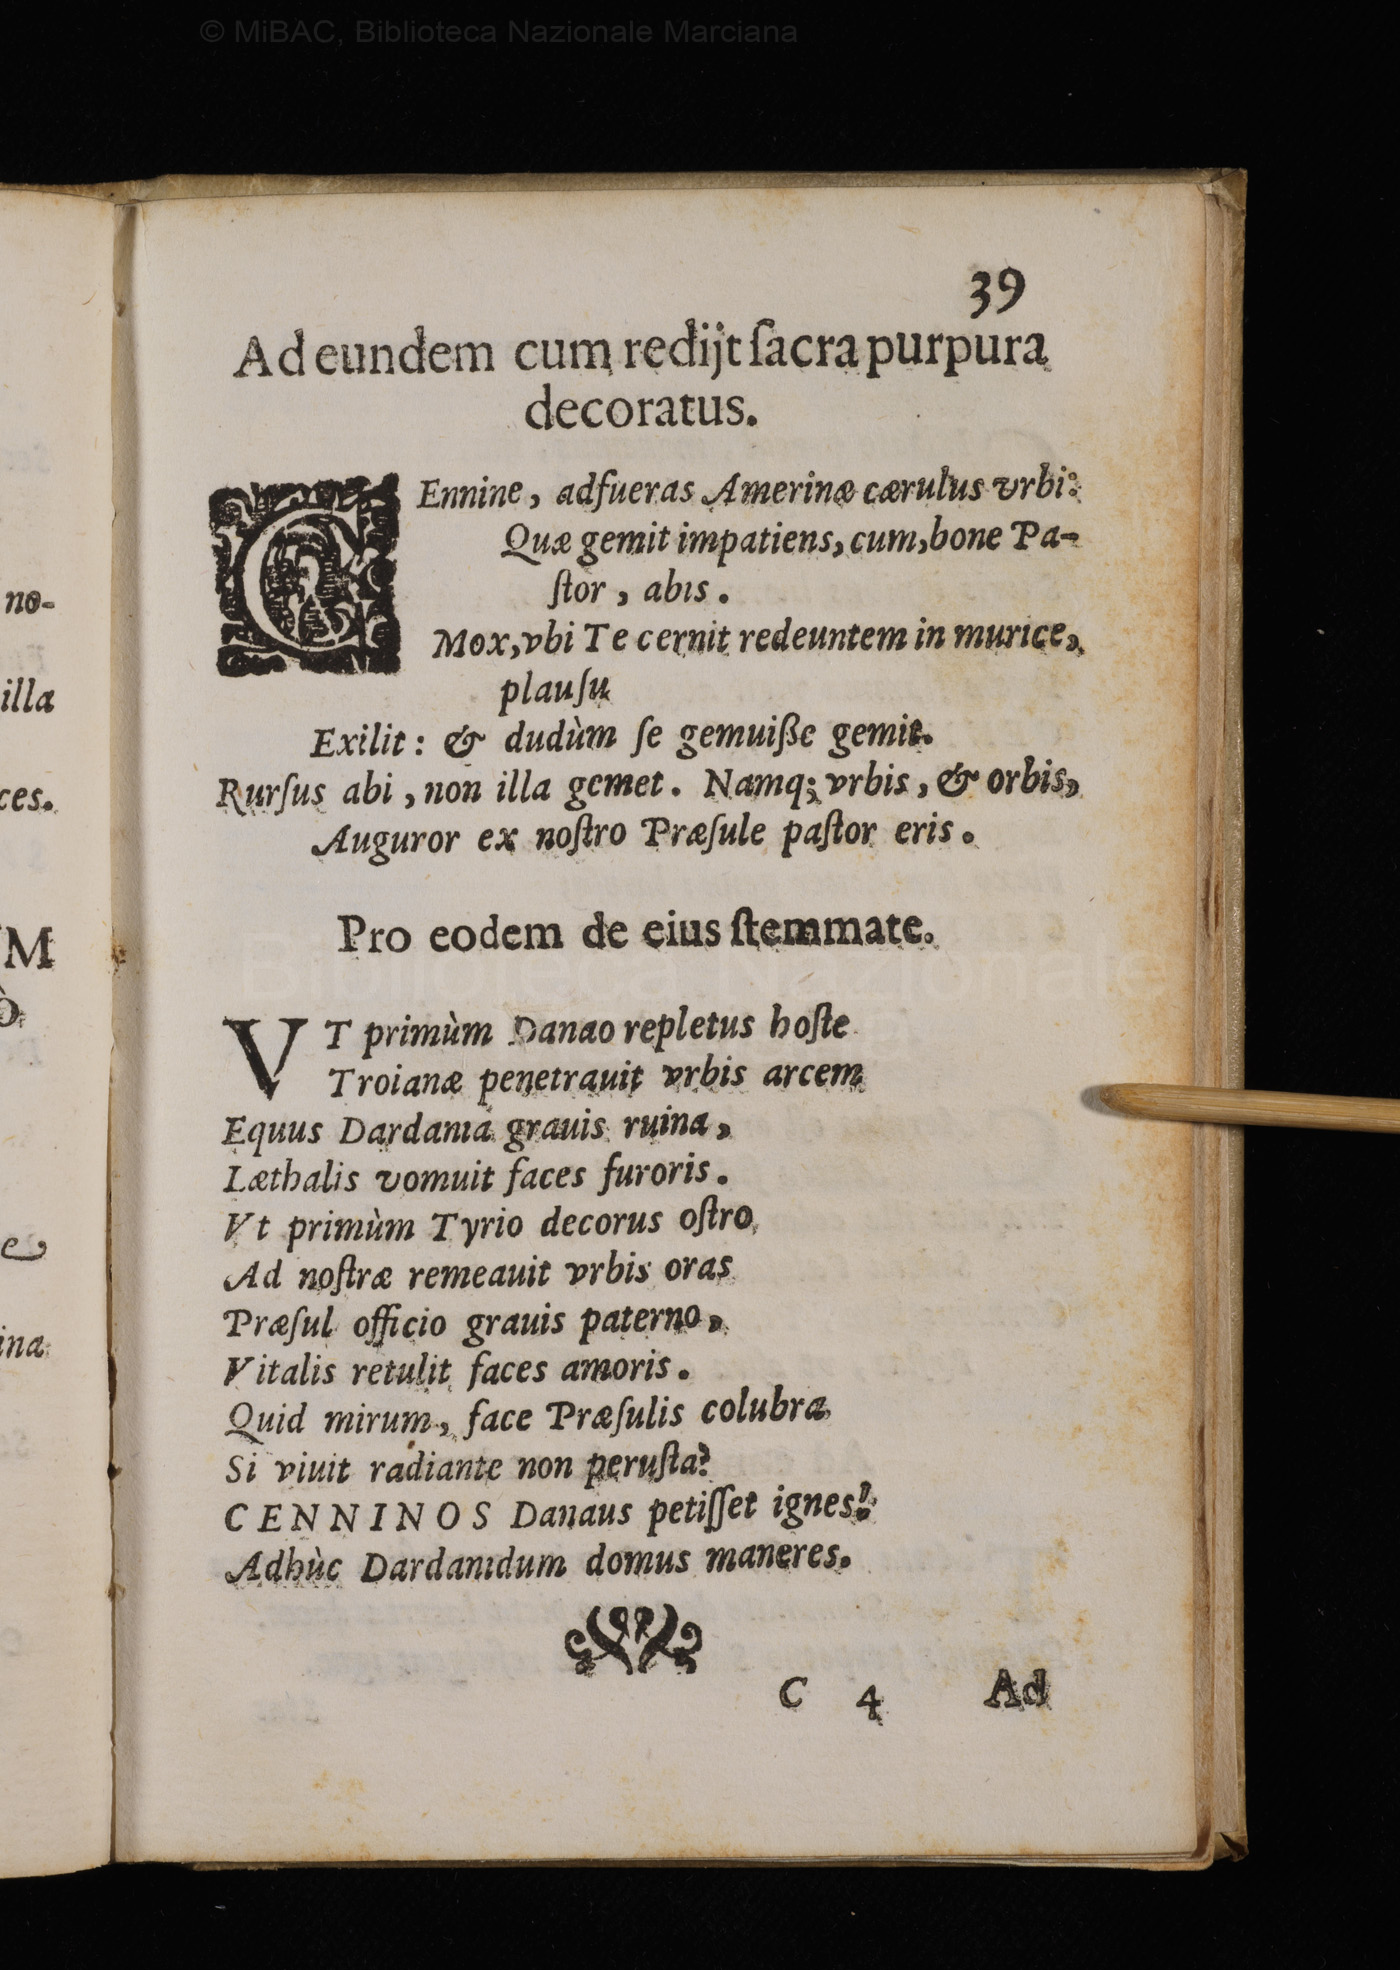 © MiBAC, Biblioteca Nazionale Marciana
39
Ad eundem cum redijt ſacra purpura
decoratus.
CEnnine, adfueras Amerinæ cærulus vrbi:
Quæ gemit impatiens, cum, bone Pa-
ſtor, abis.
Mox, vbi Te cernit redeuntem in murice,
plauſu
Exilit: & dudùm ſe gemuiße gemit.
Rurſus abi, non illa gemet. Namq; vrbis, & orbis,
Auguror ex noſtro Præſule paſtor eris.
Pro eodem de eius ſtemmate.
VT primùm Danao repletus hoſte
Troianæ penetrauit vrbis arcem
Equus Dardania grauis ruina,
Læthalis vomuit faces furoris.
Vt primùm Tyrio decorus oſtro
Ad noſtræ remeauit vrbis oras
Præſul officio grauis paterno,
Vitalis retulit faces amoris.
Quid mirum, face Præſulis colubra
Si viuit radiante non peruſta?
CENNINOS Danaus petiſſet ignes!
Adhùc Dardanidum domus maneres.
C 4 Ad
no-
illa
ces.
M
ò
e
ina
Biblioteca Nazionale